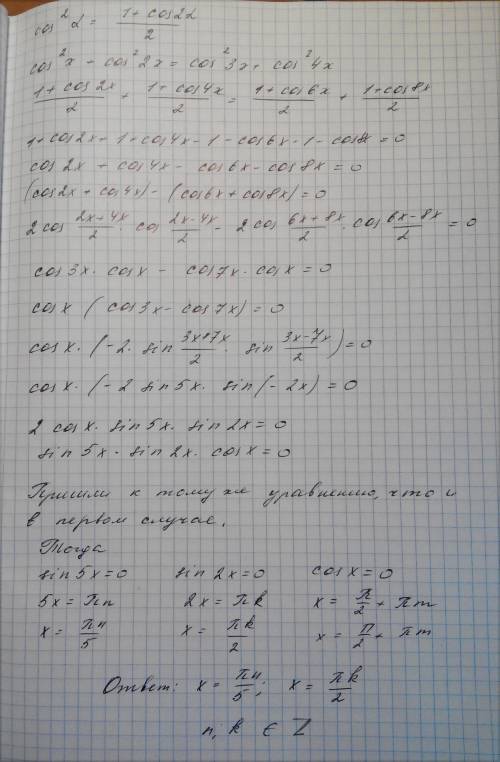 cos²α = (1+cos2α)/2
cos²x + cos²2x = cos²3x + cos²4x
(1+cos2x)/2 + (1+cos4x)/2 = (1+cos6x)/2 + (1+cos8x)/2
1+cos2x+1+cos4x-1-cos6x-1-cos8x=0
cos2x + cos4x - cos6x - cos8x = 0
(cos2x + cos4x) - (cos6x + cos8x) = 0
2cos (2x+4x)/2 · cos (2x-4x)/2 - 2cos (6x+8x)/2 · cos (6x-8x)/2 = 0
cos3x · cosx - cos7x · cosx = 0
cosx (cos3x - cos7x) = 0
cosx · (-2 · sin (3x+7x)/2 · sin (3x-7x)/2) = 0
cosx · (-2 sin5x · sin(-2x) = 0
2 cosx · sin5x · sin2x = 0
sin5x · sin2x · cosx = 0
Пришли к тому же уравнению, что и
в первом случае.
Тогда
sin5x=0 sin2x=0 cosx=0
5x = πn 2x = πk x = π/2 + πm
x = πn/5 x = πk/2 x = π/2 + πm
Ответ: x = πn/5; x = πk/2
n, k ∈ Z